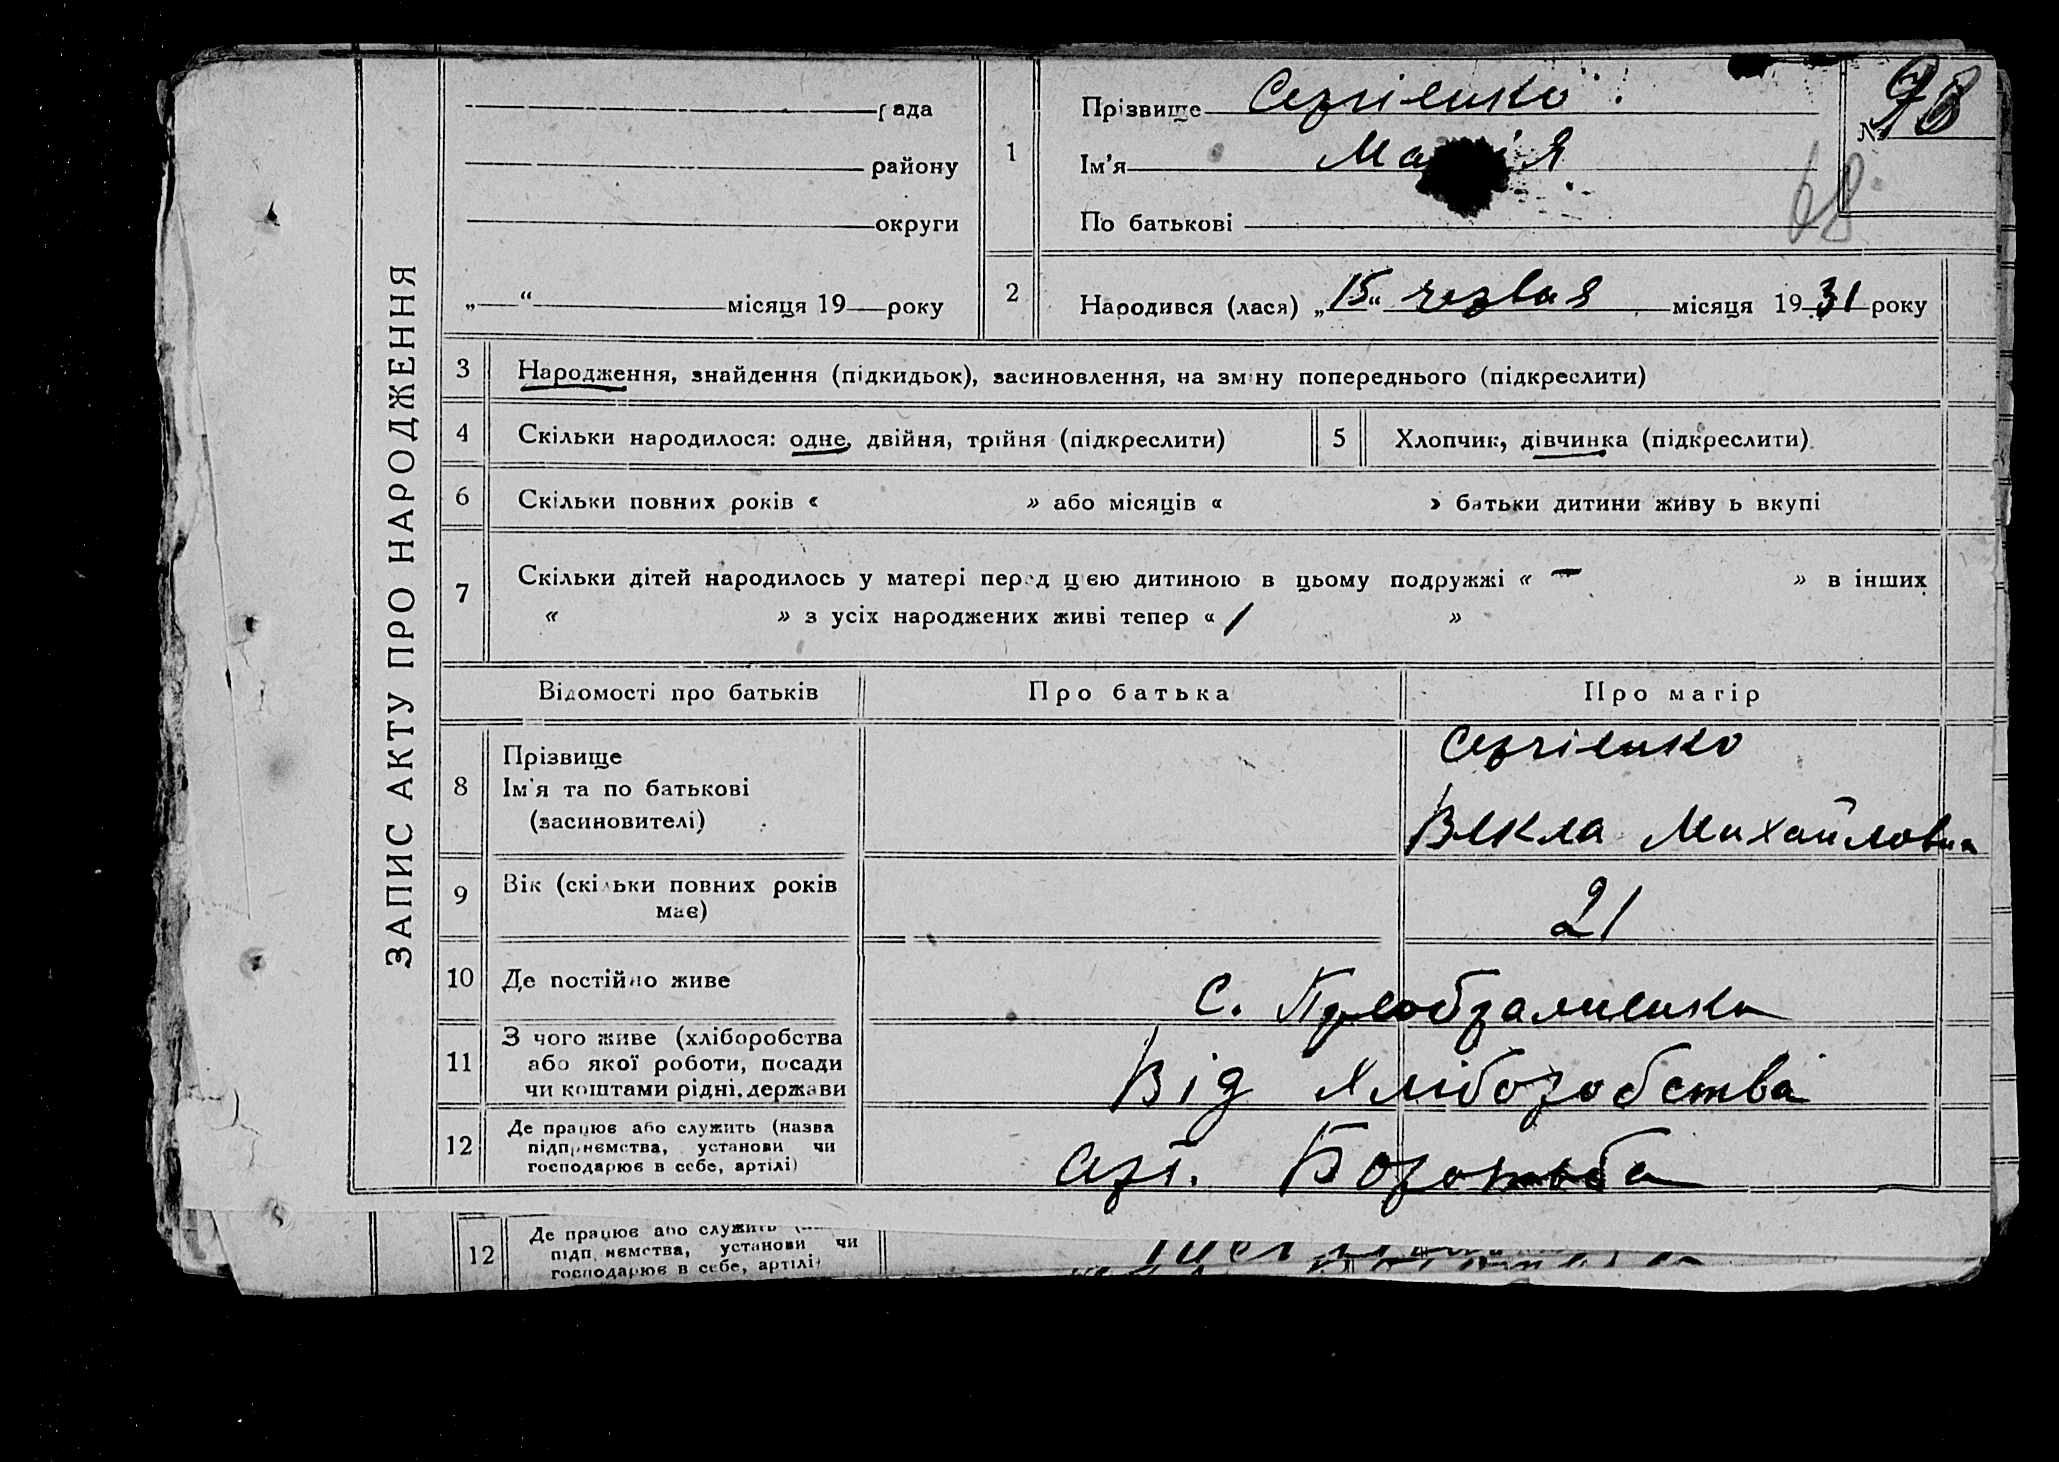 ЗАПИС АКТУ ПРО НАРОДЖЕННЯ
рада
району
округи
„ “ місяця 19 року
1
Прізвище Сергієнко
Ім'я Марія
По батькові
№ 98
68
2 Народився (лася) „15“ червня місяця 1931 року
3 Народження, знайдення (підкидьок), засиновлення, на зміну попереднього (підкреслити)
4 Скільки народилося: одне, двійня, трійня (підкреслити)
5 Хлопчик, дівчинка (підкреслити)
6 Скільки повних років « » або місяців « » батьки дитини живуть вкупі
7 Скільки дітей народилось у матері перед цією дитиною в цьому подружжі « — » в інших
« » з усіх народжених живі тепер « 1 »
Відомості про батьків Про батька Про матір
8 Прізвище
Ім'я та по батькові
(засиновителі)
Сергієнко
Векла Михайловна
9 Вік (скільки повних років
має)
21
10 Де постійно живе
с. Преображенка
11 З чого живе (хліборобства
або якої роботи, посади
чи коштами рідні, держави
Від хліборобства
12 Де працює або служить (назва
підприємства, установи чи
господарює в себе, артілі)
арт. Боротьба
12 Де працює або служить
підприємства, установи чи
господарює в себе, артілі